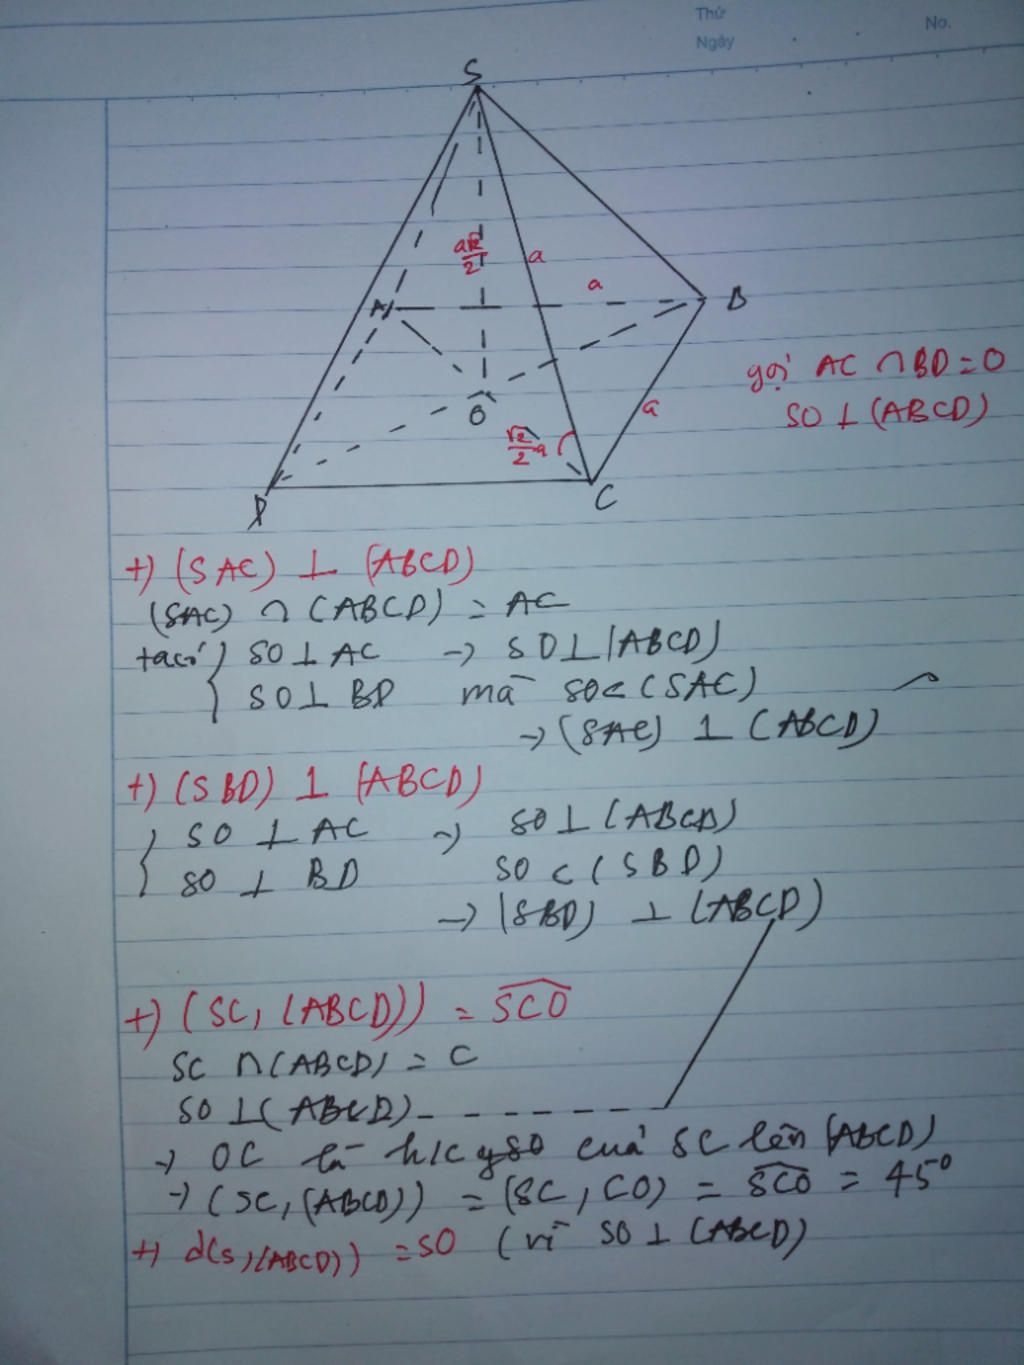 Thứ
Ngày
No.
S
a√2/2
a
a
A
B
gọi AC ∩ BD = O
SO ⊥ (ABCD)
a
O
√2/2 a
D
C
+) (SAC) ⊥ (ABCD)
(SAC) ∩ (ABCD) = AC
ta có { SO ⊥ AC → SO ⊥ (ABCD)
SO ⊥ BD mà SO ⊂ (SAC)
→ (SAC) ⊥ (ABCD)
+) (SBD) ⊥ (ABCD)
{ SO ⊥ AC → SO ⊥ (ABCD)
SO ⊥ BD SO ⊂ (SBD)
→ (SBD) ⊥ (ABCD)
+) (SC, (ABCD)) = SCO
SC ∩ (ABCD) = C
SO ⊥ (ABCD)
→ OC là h/c của SC lên (ABCD)
→ (SC, (ABCD)) = (SC, CO) = SCO = 45°
+) d(S, (ABCD)) = SO (vì SO ⊥ (ABCD)